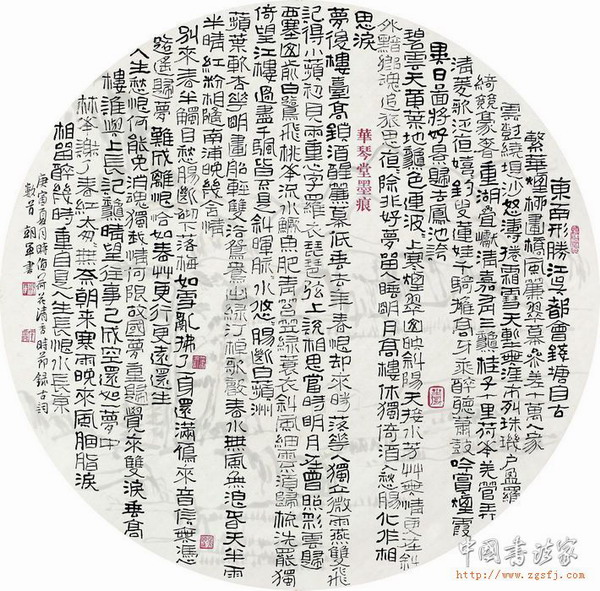 東南形勝江吳都會錢塘自古
繁華煙柳畫橋風簾翠幕參差十萬人家
雲樹繞堤沙怒濤捲霜雪天塹無涯市列珠璣戶盈羅
綺競豪奢重湖疊巘清嘉有三秋桂子十里荷花羌管弄
清菱歌泛夜嬉嬉釣叟蓮娃千騎擁高牙乘醉聽蕭鼓吟賞煙霞
異日圖將好景歸去鳳池誇
碧雲天黃葉地秋色連波上寒煙翠山映斜陽天接水芳草無情更在斜
外黯鄉魂追旅思夜除非好夢留人睡明月高樓休獨倚酒入愁腸化作相
思淚
華琴堂墨痕
夢後樓臺高鎖酒醒簾幕低垂去年春恨却來時落花人獨立微雨燕雙飛
記得小蘋初見兩重心字羅衣琵琶弦上說相思當時明月在曾照彩雲歸
西塞山前白鷺飛桃花流水鱖魚肥青箬笠綠蓑衣斜風細雨不須歸梳洗罷獨
倚望江樓過盡千帆皆不是斜暉脈水悠腸斷白蘋洲
蘋葉軟杏花明畫船輕雙浴鴛鴦出綠汀棹歌聲春水無風無浪春天半雨
半晴紅粉相隨南浦晚幾含情
別來春半觸目愁腸斷砌下落梅如雪亂拂了一身還滿雁來音信無憑
路遙歸夢難成離恨恰如春草更行更遠還生
人生愁恨何能免消魂獨我情何限故國夢重歸覺來雙淚垂高
樓誰與上長記秋晴望往事已成空還如一夢中
林花謝了春紅太匆匆無奈朝來寒雨晚來風胭脂淚
相留醉幾時重自是人生長恨水長東
庚寅夏月時值荷花清香時節錄古詞
數首朝軍書
中国书法家
http://www.zgsfj.com